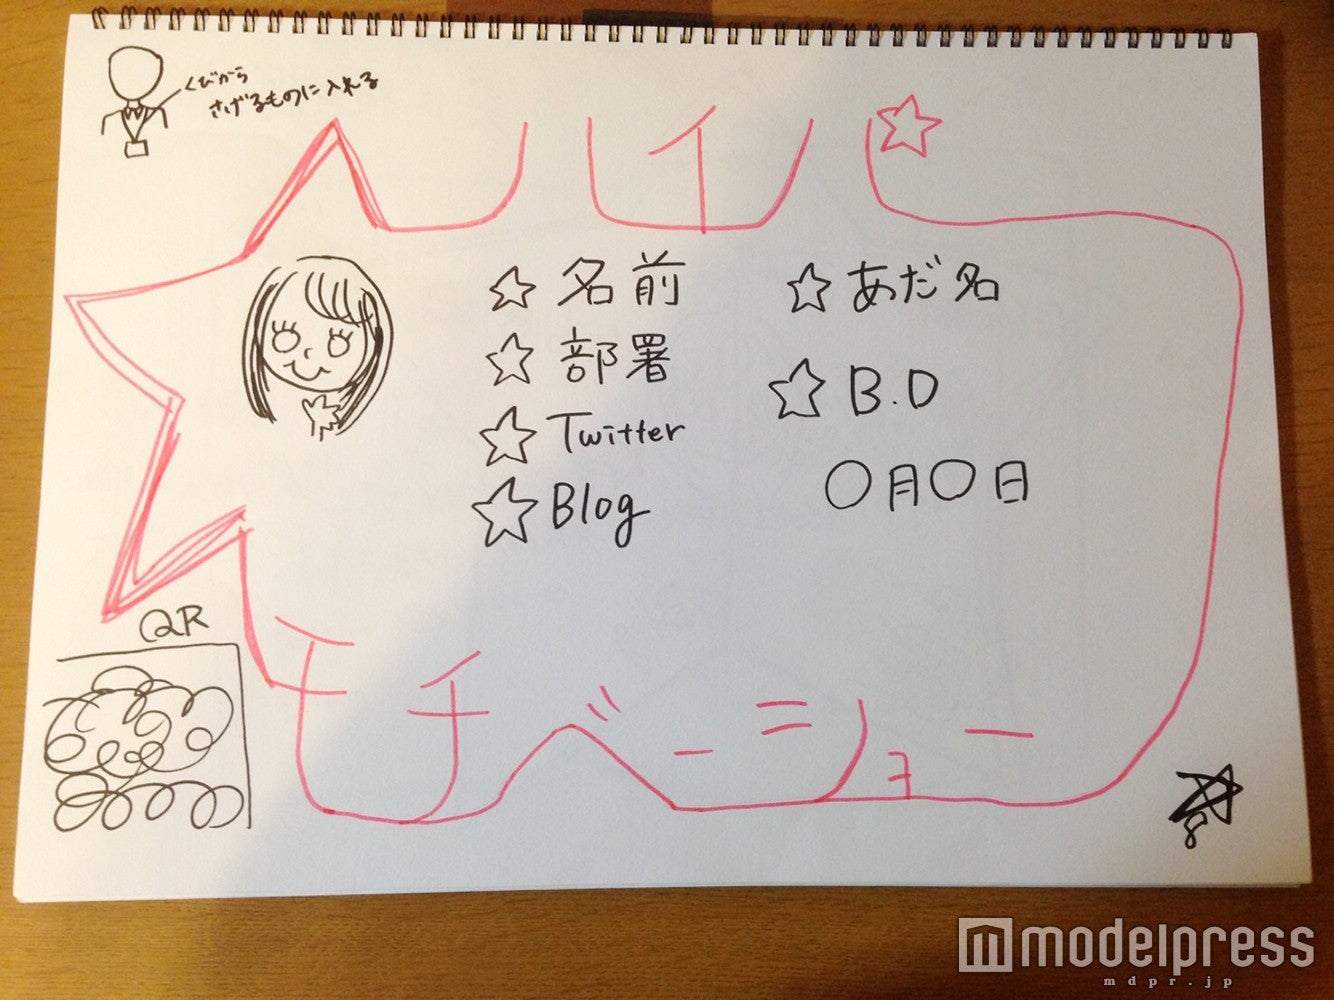 くびから
さげるものに入れる
ハイパー
☆ 名前
☆ あだ名
☆ 部署
☆ B.D
☆ Twitter
☆ Blog
〇月〇日
QR
モチベーション
modelpress
mdpr.jp